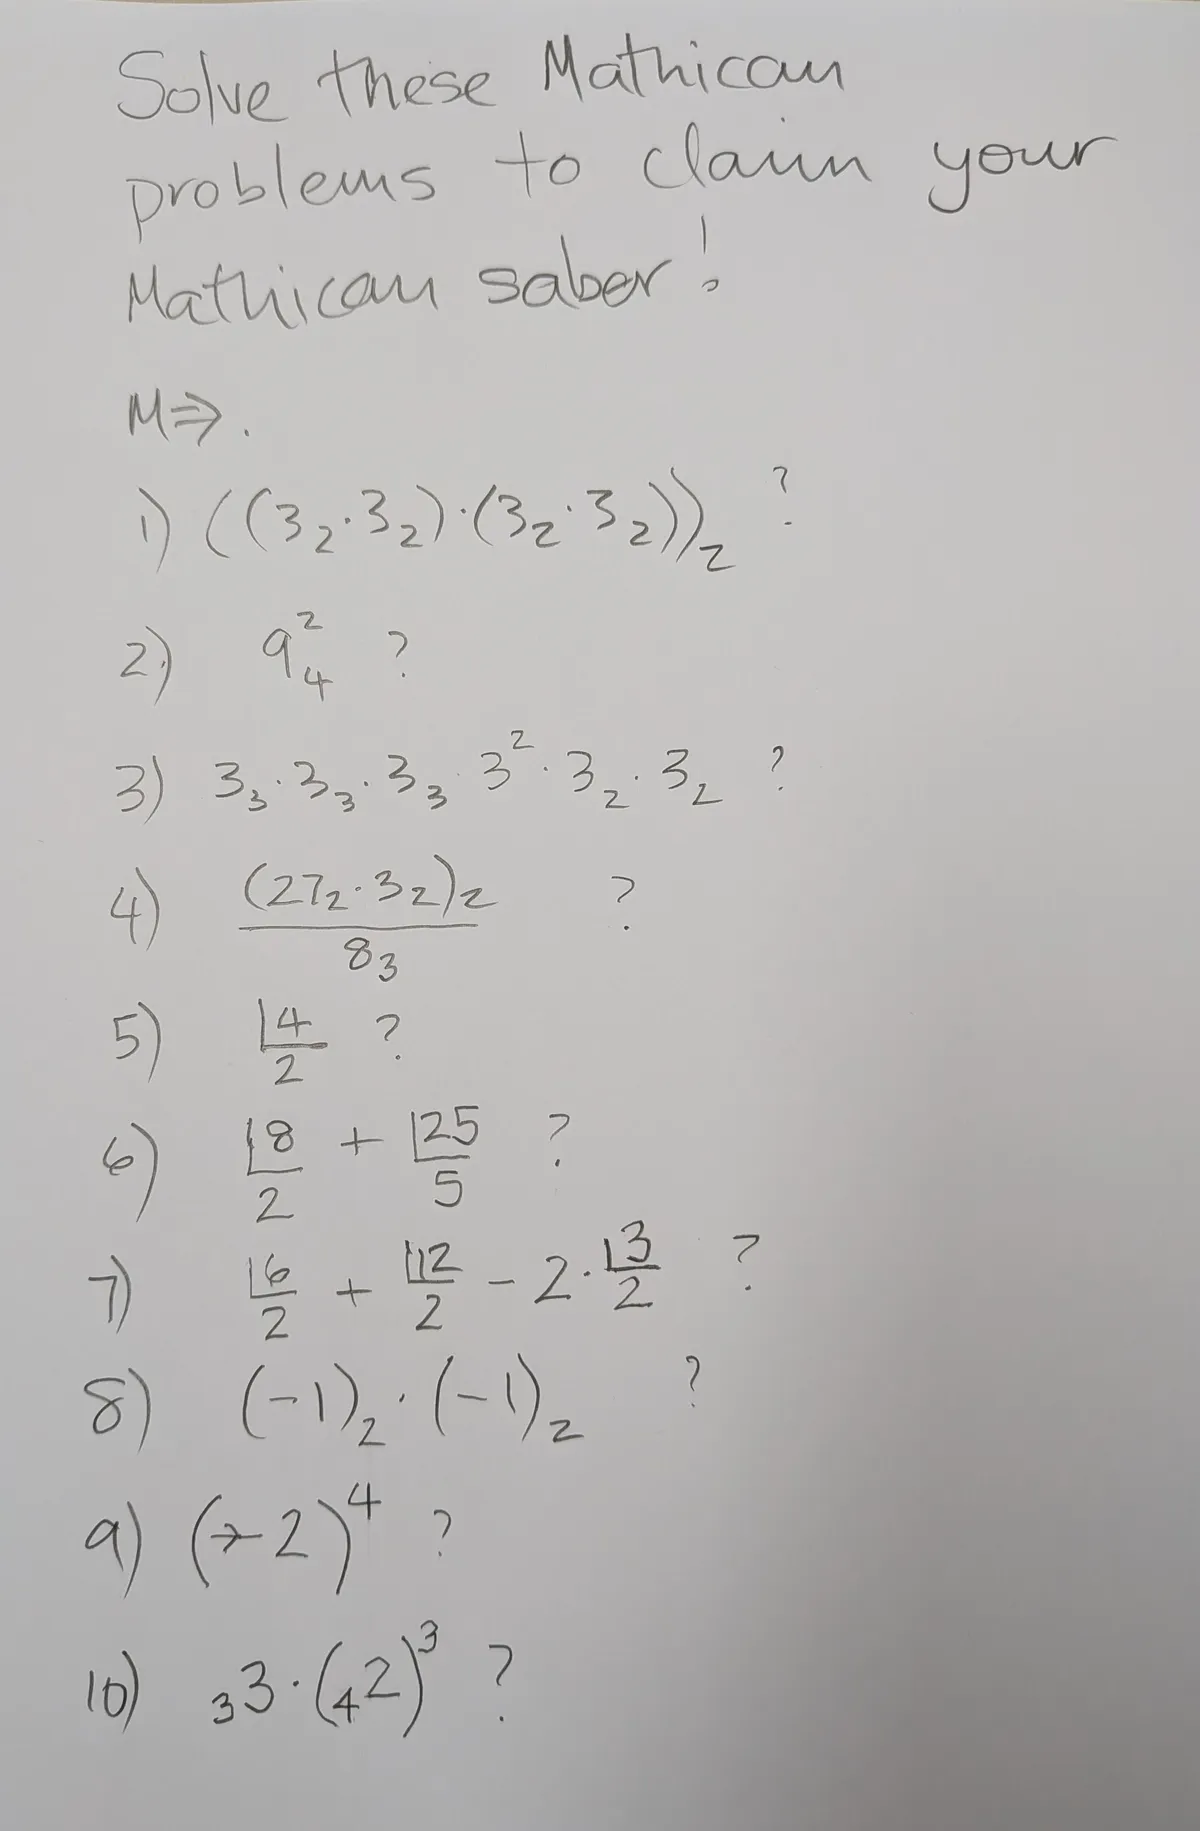 Solve these Mathican
problems to claim your
Mathican saber!
M⇒.
1) ((3₂·3₂)·(3₂·3₂))₂ ?
2) 9₄² ?
3) 3₃·3₃·3₃·3²·3₂·3₂ ?
4) (27₂·3₂)₂ / 8₃ ?
5) |4 / 2 ?
6) |8 / 2 + |25 / 5 ?
7) |6 / 2 + |12 / 2 - 2·|3 / 2 ?
8) (-1)₂·(-1)₂ ?
9) (→-2)⁴ ?
10) ₃3·(₄2)³ ?